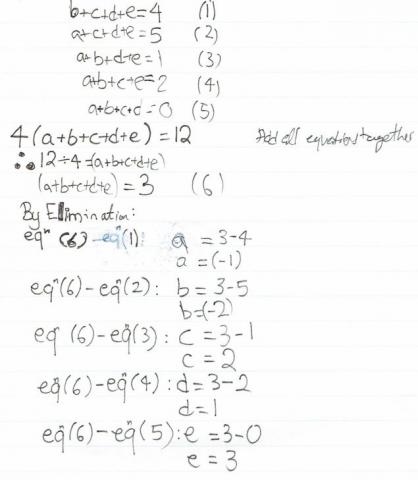 b+c+d+e=4 (1)
a+c+d+e=5 (2)
a+b+d+e=1 (3)
a+b+c+e=2 (4)
a+b+c+d=0 (5)
4(a+b+c+d+e)=12 Add all equations together
∴ 12÷4=(a+b+c+d+e)
(a+b+c+d+e)=3 (6)
By Elimination:
eqⁿ (6) -eqⁿ(1): a = 3-4
a = (-1)
eqⁿ(6)-eqⁿ(2): b = 3-5
b=(-2)
eqⁿ (6)-eqⁿ(3): c = 3-1
c = 2
eqⁿ(6)-eqⁿ(4): d = 3-2
d = 1
eqⁿ(6)-eqⁿ(5): e = 3-0
e = 3